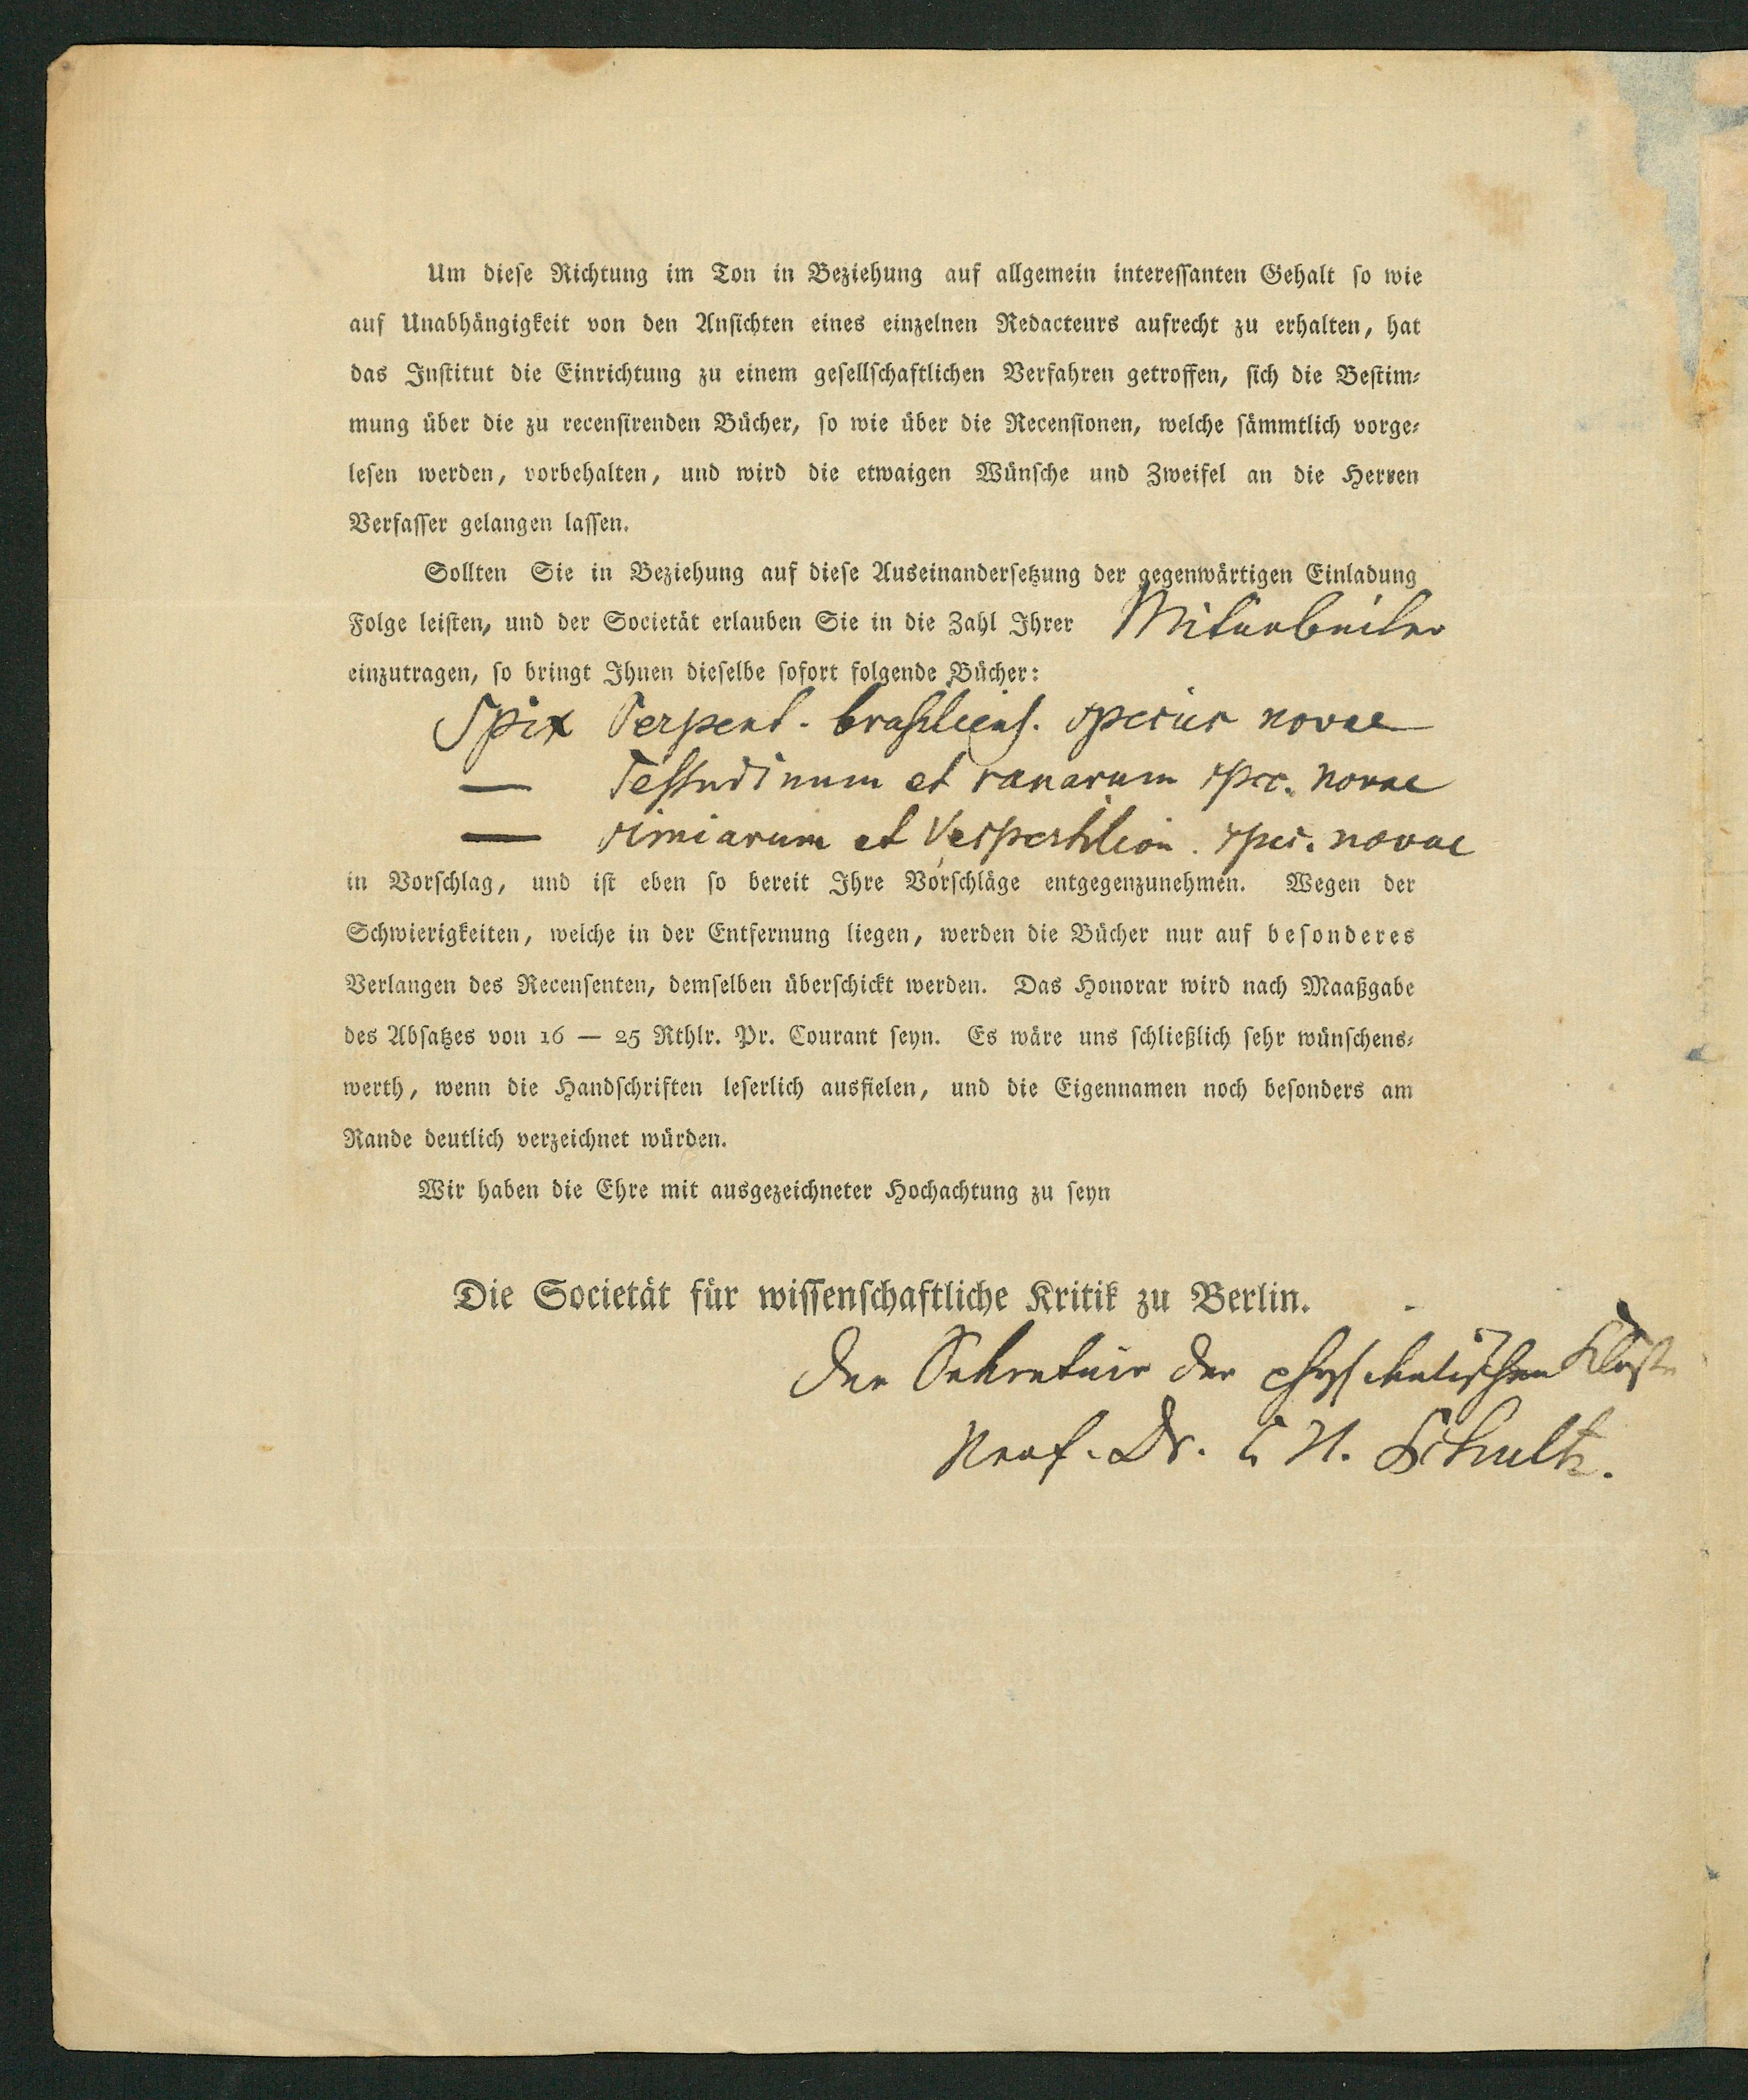 Um diese Richtung im Ton in Beziehung auf allgemein interessanten Gehalt so wie
auf Unabhängigkeit von den Ansichten eines einzelnen Redacteurs aufrecht zu erhalten, hat
das Institut die Einrichtung zu einem gesellschaftlichen Verfahren getroffen, sich die Bestim-
mung über die zu recensirenden Bücher, so wie über die Recensionen, welche sämmtlich vorge-
lesen werden, vorbehalten, und wird die etwaigen Wünsche und Zweifel an die Herren
Verfasser gelangen lassen.
Sollten Sie in Beziehung auf diese Auseinandersetzung der gegenwärtigen Einladung
Folge leisten, und der Societät erlauben Sie in die Zahl Ihrer Mitarbeiter
einzutragen, so bringt Ihnen dieselbe sofort folgende Bücher:
Spix Serpent. brasiliens. species novae
— Testudinum et ranarum spec. novae
— simiarum et Vespertilion. spec. novae
in Vorschlag, und ist eben so bereit Ihre Vorschläge entgegenzunehmen. Wegen der
Schwierigkeiten, welche in der Entfernung liegen, werden die Bücher nur auf besonderes
Verlangen des Recensenten, demselben überschickt werden. Das Honorar wird nach Maaßgabe
des Absatzes von 16 — 25 Rthlr. Pr. Courant seyn. Es wäre uns schließlich sehr wünschens-
werth, wenn die Handschriften leserlich ausfielen, und die Eigennamen noch besonders am
Rande deutlich verzeichnet würden.
Wir haben die Ehre mit ausgezeichneter Hochachtung zu seyn
Die Societät für wissenschaftliche Kritik zu Berlin.
Der Sekretair der physikalischen Klasse
Prof. Dr. C H. Schultz.